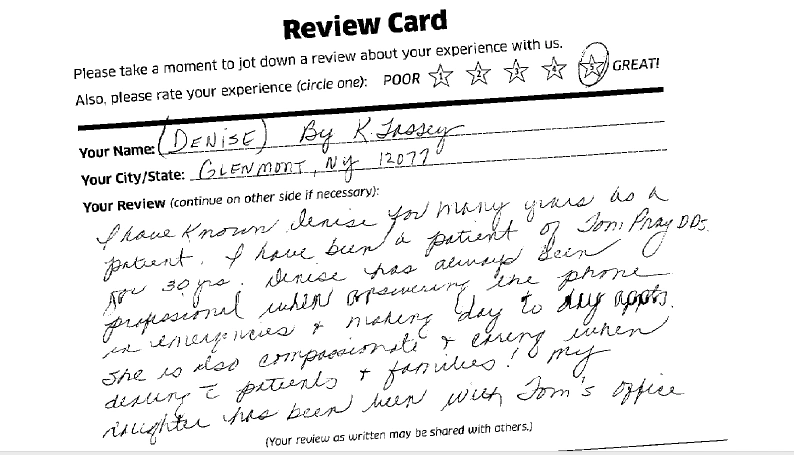 Review Card
Please take a moment to jot down a review about your experience with us.
Also, please rate your experience (circle one): POOR 1 2 3 4 5 GREAT!
Your Name: (DENISE) By K. Tassey
Your City/State: GLENMONT, NY 12077
Your Review (continue on other side if necessary):
I have known Denise for many years as a
patient. I have been a patient of Tom Pray DDS.
for 30 yrs. Denise has always been
professional when answering the phone
in emergencies & making day to day appts.
She is also compassionate & caring when
dealing c̄ patients & families! My
daughter has been with Tom's office
(Your review as written may be shared with others.)